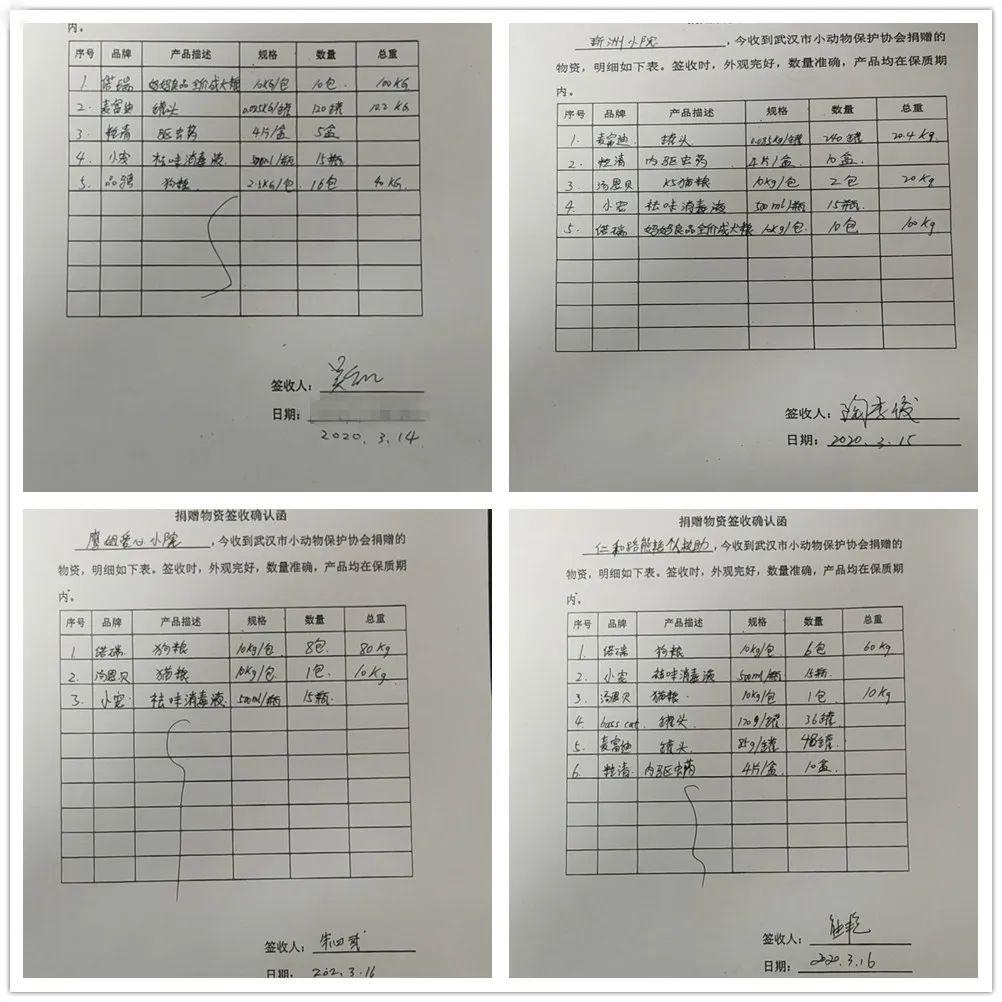 内。
序号 品牌 产品描述 规格 数量 总重
1. 诺瑞 妈妈良品全价成犬粮 10KG/包 10包 100KG
2. 麦富迪 罐头 0.085KG/罐 120罐 12.2 KG
3. 粒清 驱虫药 4片/盒 5盒
4. 小宠 祛味消毒液 500ml/瓶 15瓶
5. 品骋 狗粮 2.5KG/包 16包 40KG
签收人:
日期:
2020.3.14
新洲小院,今收到武汉市小动物保护协会捐赠的
物资,明细如下表。签收时,外观完好,数量准确,产品均在保质期
内。
序号 品牌 产品描述 规格 数量 总重
1. 麦富迪 罐头 0.085kg/罐 240罐 20.4kg
2. 粒清 内驱虫药 4片/盒 10盒
3 汤恩贝 K5猫粮 10kg/包 2包 20kg
4. 小宠 祛味消毒液 500ml/瓶 15瓶
5. 诺瑞 妈妈良品全价成犬粮 10kg/包 10包 100kg
签收人:陶季俊
日期:2020.3.15
捐赠物资签收确认函
鹰姐爱心小院,今收到武汉市小动物保护协会捐赠的
物资,明细如下表。签收时,外观完好,数量准确,产品均在保质期
内。
序号 品牌 产品描述 规格 数量 总重
1 诺瑞 狗粮 10kg/包 8包 80kg
2. 汤恩贝 猫粮 10kg/包 1包 10kg
3. 小宠 祛味消毒液 500ml/瓶 15瓶
签收人:朱四武
日期: 202.3.16
捐赠物资签收确认函
仁和路熊括仪救助,今收到武汉市小动物保护协会捐赠的
物资,明细如下表。签收时,外观完好,数量准确,产品均在保质期
内。
序号 品牌 产品描述 规格 数量 总重
1. 诺瑞 狗粮 10kg/包 6包 60kg
2. 小宠 祛味消毒液 500ml/瓶 15瓶
3. 汤恩贝 猫粮 10kg/包 1包 10kg
4. boss cat 罐头 170g/罐 36罐
5. 麦富迪 罐头 85g/罐 48罐
6. 粒清 内驱虫药 4片/盒 10盒
签收人:
日期: 2020.3.16